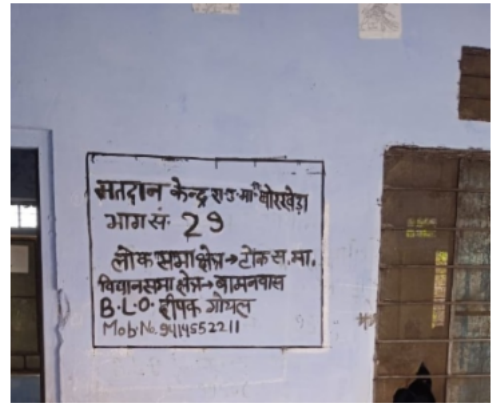 मतदान केन्द्र रा.उ.मा. बोरखेड़ा
भाग सं. 29
लोक सभा क्षेत्र → टोंक स.मा.
विधानसभा क्षेत्र → बामनवास
B.L.O. दीपक गोयल
Mob.No. 9414552211